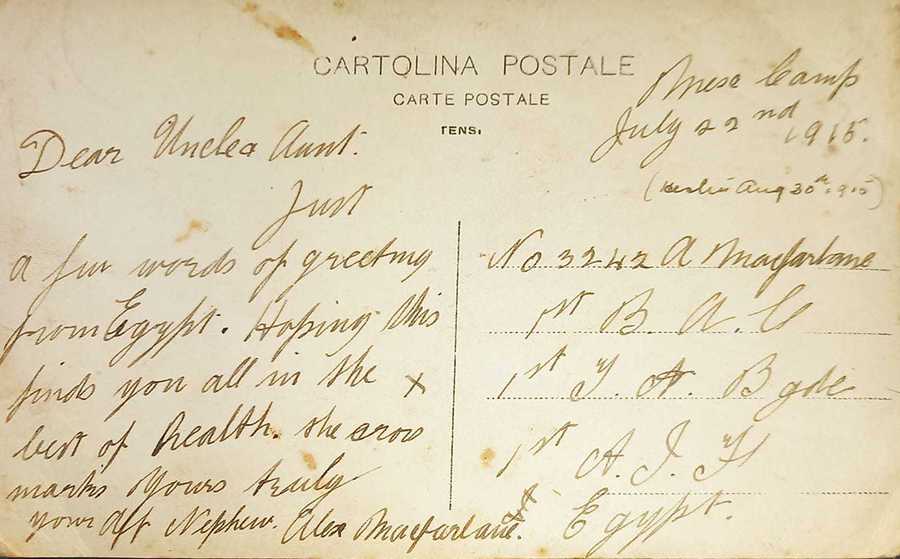 CARTOLINA POSTALE
CARTE POSTALE
TENS.
Mex Camp
July 22nd
1915.
Aug 30th 1915)
Dear Uncle & Aunt.
Just
a few words of greeting
from Egypt. Hoping this
finds you all in the X
best of health. the cross
marks yours truly
your Aff Nephew. Alex Macfarlane.
No 3242 A Macfarlane
1st B. A. C
1st F. A. Bgde
1st A. I. F
Egypt.